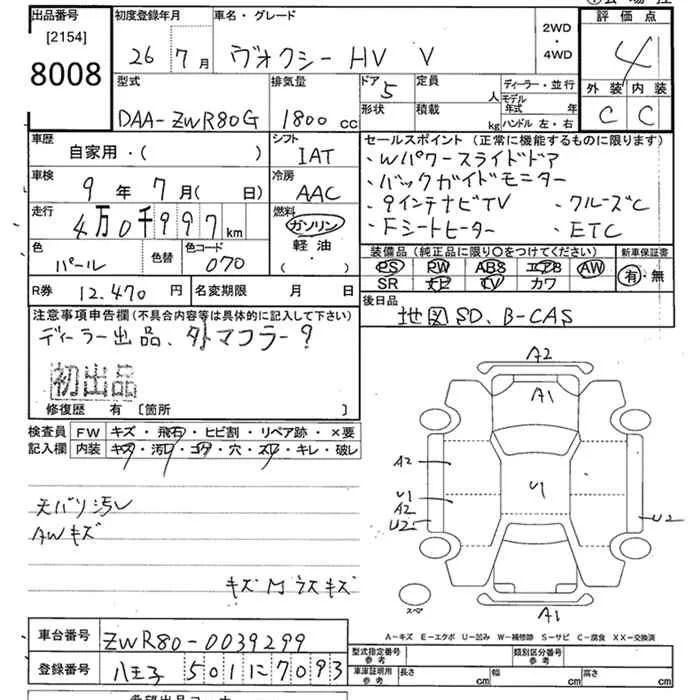 出品番号 初度登録年月 車名・グレード 評価点
[2154]
8008 26 7月 ヴォクシー HV V 2WD・4WD 4
型式 排気量 ドア 5 定員 人 ディーラー・並行 外装 内装
DAA-ZWR80G 1800cc 形状 積載 kg モデル年式 年 ハンドル 左・右 C C
車歴 自家用・( ) シフト IAT
セールスポイント (正常に機能するものに限ります)
・Wパワースライドドア
車検 9年7月(日) 冷房 AAC ・バックガイドモニター
走行 4万0千997km 燃料 ガソリン 軽油 ( ・ )
・9インチナビTV ・クルーズC
・Fシートヒーター ・ETC
色 パール 色替 色コード 070
装備品 (純正品に限り○をつけてください) 新車保証書
PS PW ABS エアB AW 有・無
SR ナビ TV カワ
R券 12.470円 名変期限 月 日
後日品 地図SD、B-CAS
注意事項申告欄(不具合内容等は具体的に記入して下さい)
ディーラー出品、外マフラー?
初出品
修復歴 有 [箇所 ]
検査員 FW キズ・飛石・ヒビ割・リペア跡・×要
記入欄 内装 キズ・汚レ・コゲ・穴・スレ・キレ・破レ
天バリ汚レ
AWキズ
キズM ラスキズ
A2
A1
A2
U1 U1
A2
U2 U2
スペア
A1
A-キズ E-エクボ U-凹み W-補修跡 S-サビ C-腐食 XX-交換済
車台番号 ZWR80-0039299
登録番号 八王子 501に7093
型式指定番号 参考 類別区分番号 参考
車庫証明用 参考 長さ cm 幅 cm 高さ cm